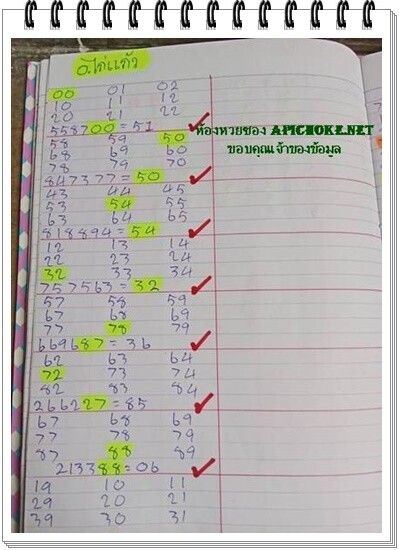 อ.ไก่แก้ว
00 01 02
10 11 12
20 21 22
558700 = 51
ห้องหวยซอง APICHOKE.NET
ขอบคุณเจ้าของข้อมูล
58 59 50
68 69 60
78 79 70
847377 = 50
43 44 45
53 54 55
63 64 65
818894 = 54
12 13 14
22 23 24
32 33 34
757563 = 32
57 58 59
67 68 69
77 78 79
669687 = 36
62 63 64
72 73 74
82 83 84
266227 = 85
67 68 69
77 78 79
87 88 89
213388 = 06
19 10 11
29 20 21
39 30 31